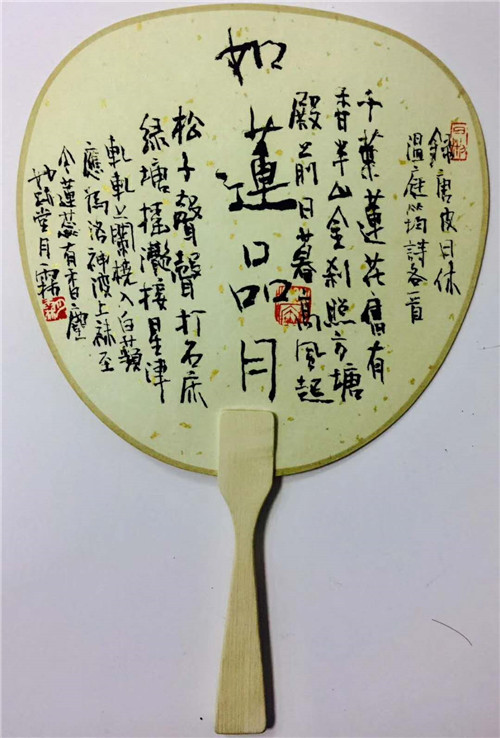 如蓮品月
錄唐皮日休
温庭筠詩各一首
千葉蓮花舊有
香半山金刹照方塘
殿前日暮高風起
松子聲聲打石床
綠塘搖灩接星津
軋軋蘭橈入白蘋
應為洛神波上襪至
今蓮蕊有香塵
堂月霖